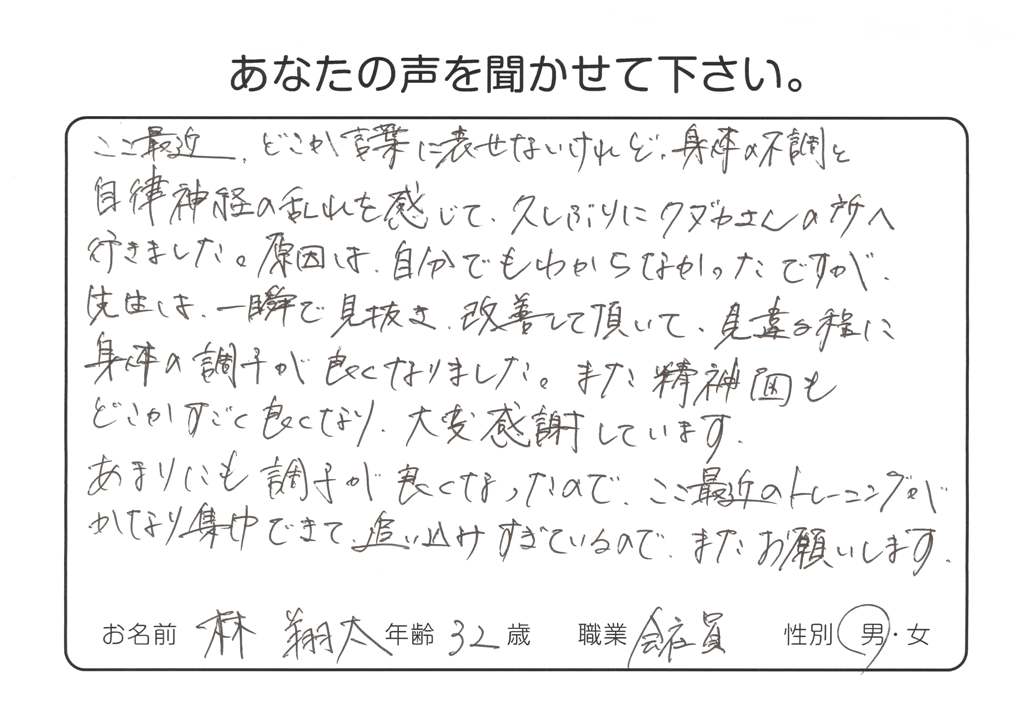 あなたの声を聞かせて下さい。
ここ最近、どこか言葉に表せないけれど、身体の不調と
自律神経の乱れを感じて、久しぶりにクヌギさんの所へ
行きました。原因は、自分でもわからなかったですが、
先生は、一瞬で見抜き、改善して頂いて、見違る程に
身体の調子が良くなりました。また精神面も
どこかすごく良くなり、大変感謝しています。
あまりにも調子が良くなったので、ここ最近のトレーニングが
かなり集中できて、追い込みすぎているので、またお願いします。
お名前 林 翔太 年齢 32 歳 職業 会社員 性別 男・女